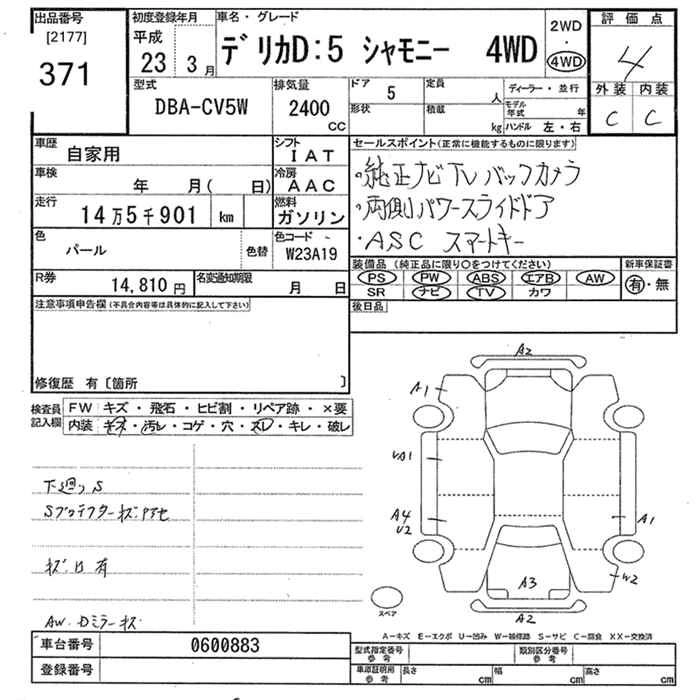 出品番号
[2177]
371
初度登録年月
平成
23 3月
車名・グレード
デリカD:5 シャモニー 4WD
2WD
・
4WD
評価点
4
外装 内装
C C
型式
DBA-CV5W
排気量
2400
CC
ドア
5
定員
人
形状
積載
kg
ディーラー・並行
モデル年式 年
ハンドル 左・右
車歴
自家用
シフト
IAT
車検
年 月( 日)
冷房
AAC
走行
14万5千901 km
燃料
ガソリン
色
パール
色替
色コード
W23A19
R券
14,810円
名変通知期限
月 日
セールスポイント(正常に機能するものに限ります)
・純正ナビTVバックカメラ
・両側パワースライドドア
・ASC スマートキー
装備品 (純正品に限り○をつけてください)
PS PW ABS エアB AW
SR ナビ TV カワ
新車保証書
有・無
後日品
注意事項申告欄(不具合内容等は具体的に記入して下さい)
修復歴 有〔箇所 〕
検査員記入欄
FW キズ・飛石・ヒビ割・リペア跡・×要
内装 キズ・汚レ・コゲ・穴・スレ・キレ・破レ
下廻りS
キズ凹有
AW.Dミラーキズ
A2
A1
A1
A4
U2
A1
W2
A3
A2
スペア
A-キズ E-エクボ U-凹み W-補修跡 S-サビ C-腐食 XX-交換済
車台番号
0600883
登録番号
型式指定番号
参考
類別区分番号
参考
車庫証明用
参考
長さ cm
幅 cm
高さ cm